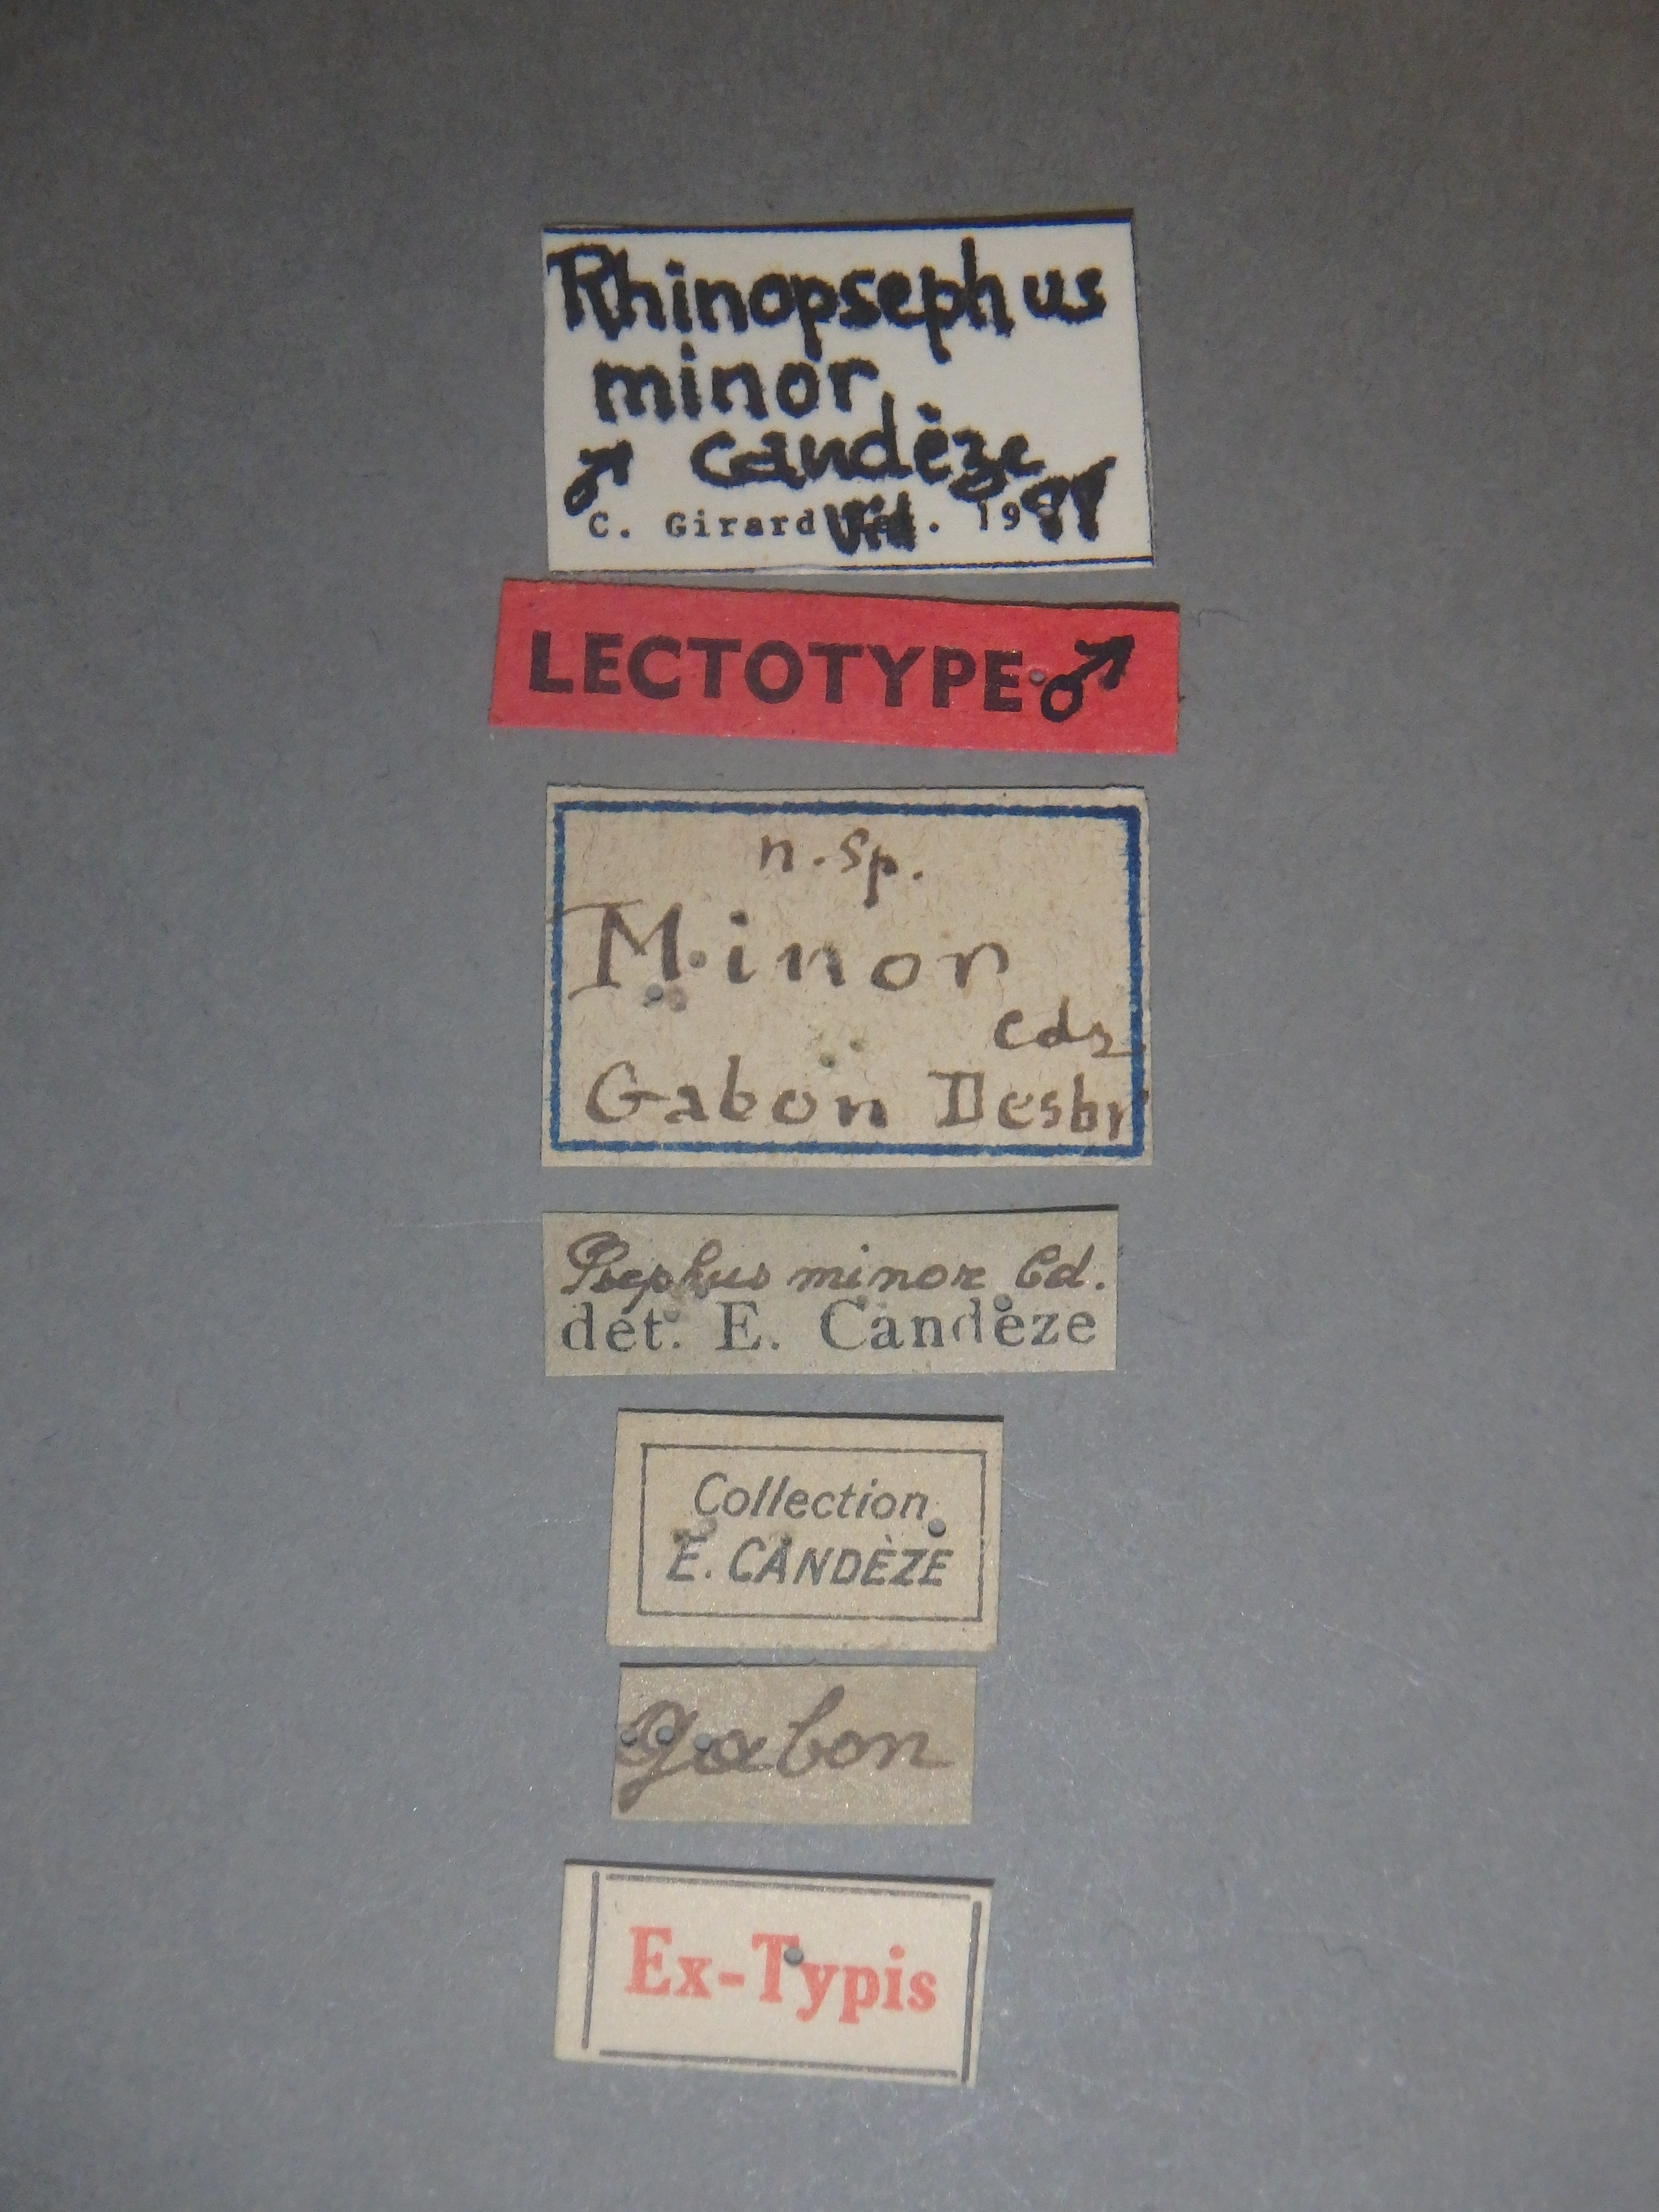 Rhinopsephus
minor
♂ Candèze
C. Girard Vid. 19
LECTOTYPE ♂
n.sp.
Minor
cdz
Gabon Desbr
Psephus minor Cd.
det. E. Candèze
Collection
E. CANDÈZE
Gabon
Ex-Typis